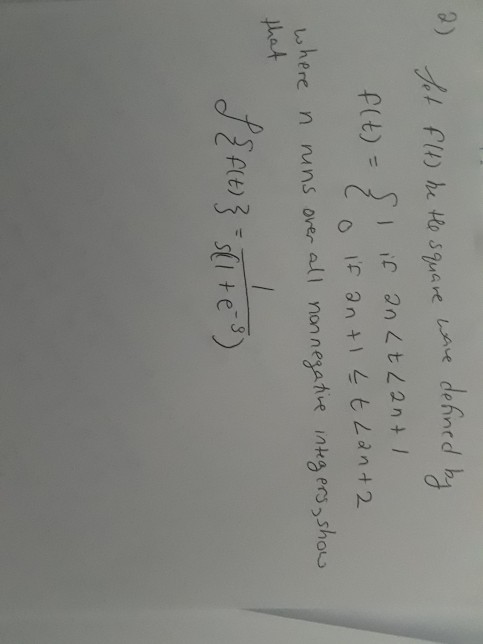 2) Let f(t) be the square wave defined by
f(t) = { 1 if 2n < t < 2n + 1
0 if 2n + 1 ≤ t < 2n + 2
where n runs over all nonnegative integers, show
that
ℒ{f(t)} = 1 / s(1 + e^-s)